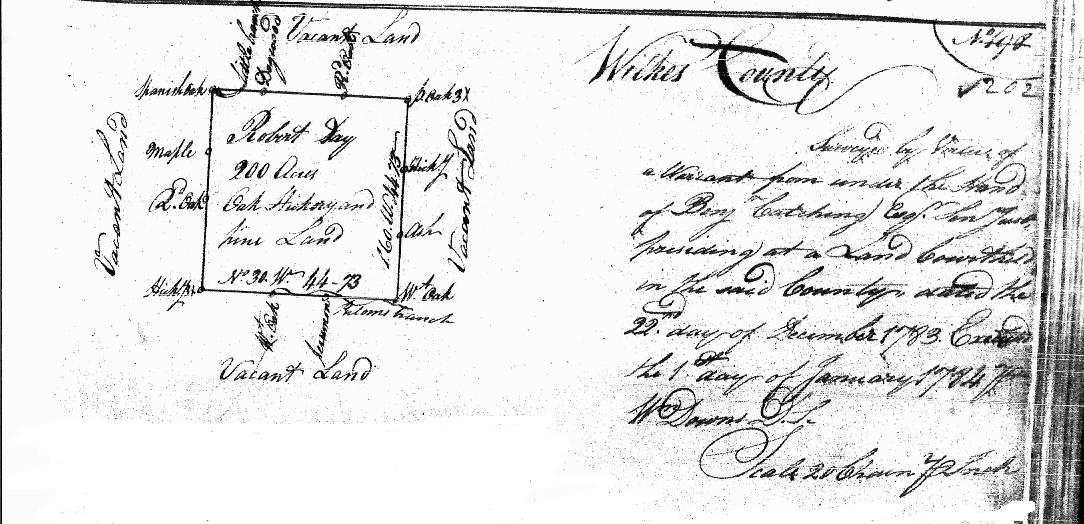 Vacant Land
Dogwood
Spanish Oak
P. Oak 3X
Maple
Hicky
R. Oak
Ash
Vacant Land
Vacant Land
Robert Day
200 Acres
Oak Hickory and
pine Land
44-73
No 30. Wt 44-73
Hicky
Wt Oak
Wt Oak
Persimmon
Branch
Vacant Land
Wilkes County
202
Survey'd by Virtue of
a Warrant from under the Hand
of Benj Catching Esqr.
presiding at a Land Court held
in the said County dated the
22nd day of December 1783.
the 1st day of January 1784
Wm Downs D.S.
Scale 20 Chain Inch